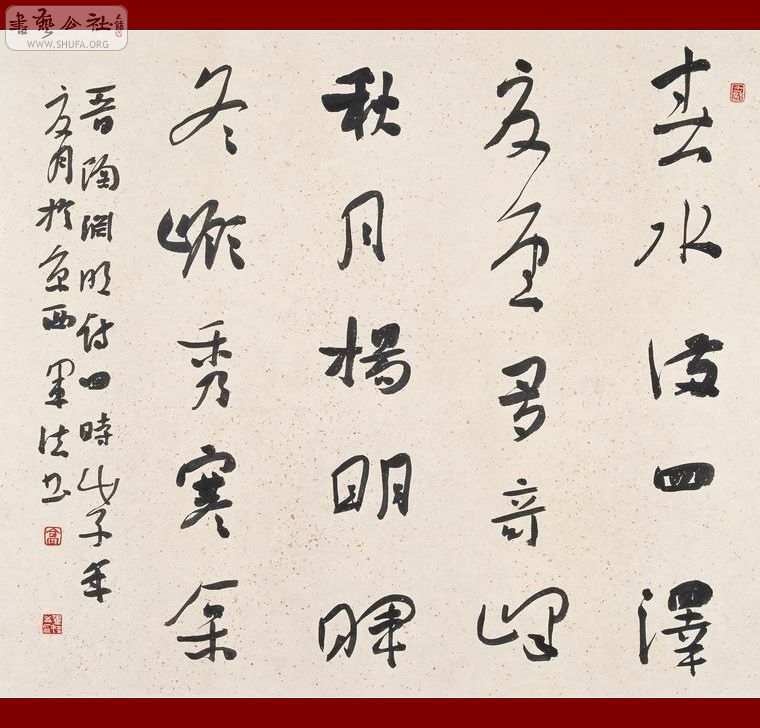 書藝公社
WWW.SHUFA.ORG
春水滿四澤
夏雲多奇峰
秋月楊明暉
冬嶺秀寒松
晉陶淵明詩四時戊子年
夏月於京西軍法書